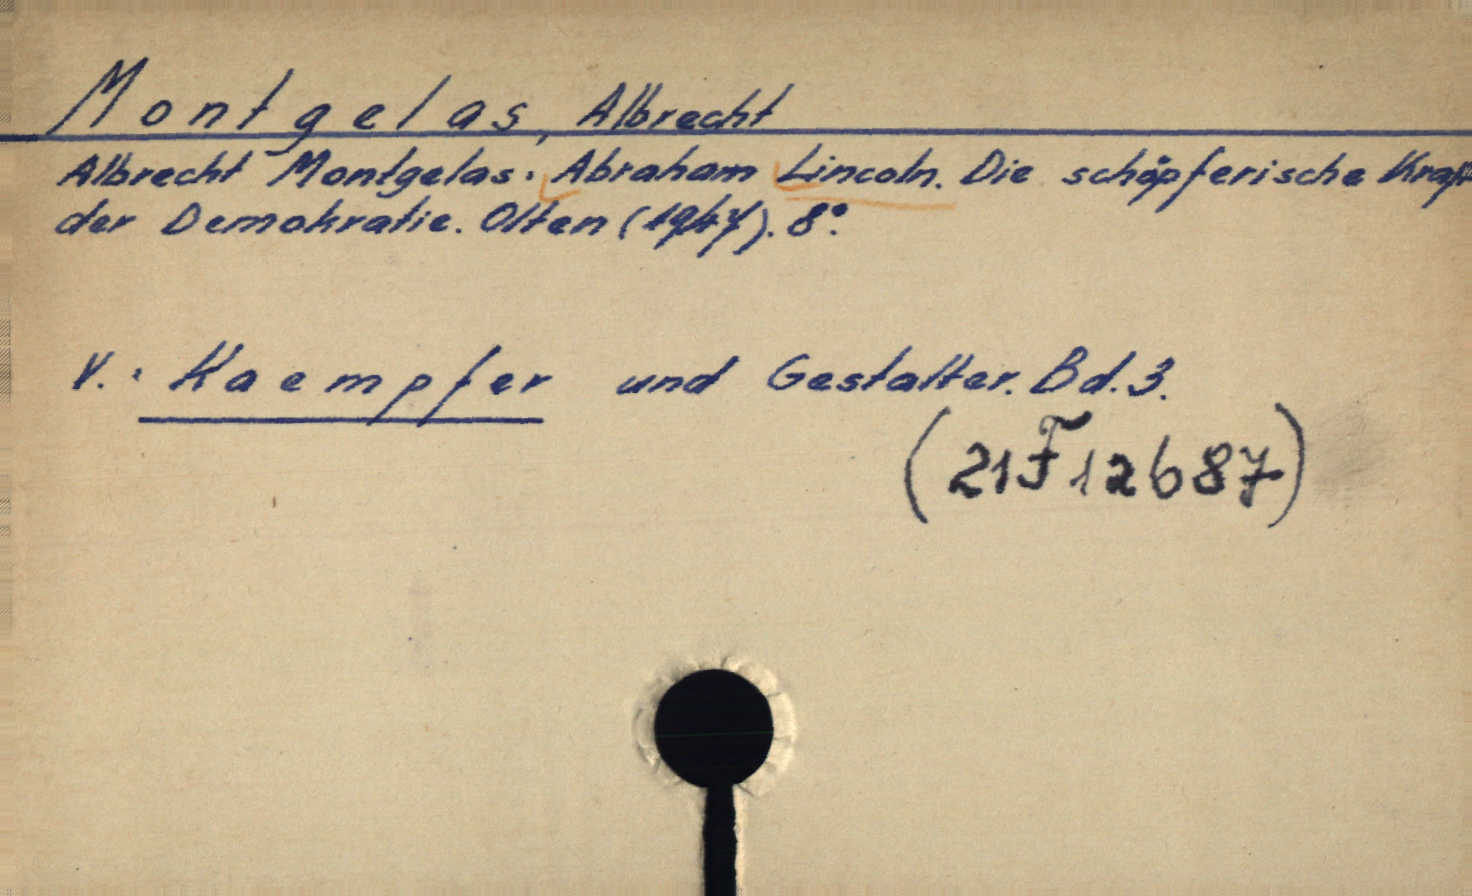 Montgelas, Albrecht
Albrecht Montgelas: Abraham Lincoln. Die schöpferische Kraft
der Demokratie. Olten (1947). 8°.
V.: Kaempfer und Gestalter. Bd. 3.
(21F12687)